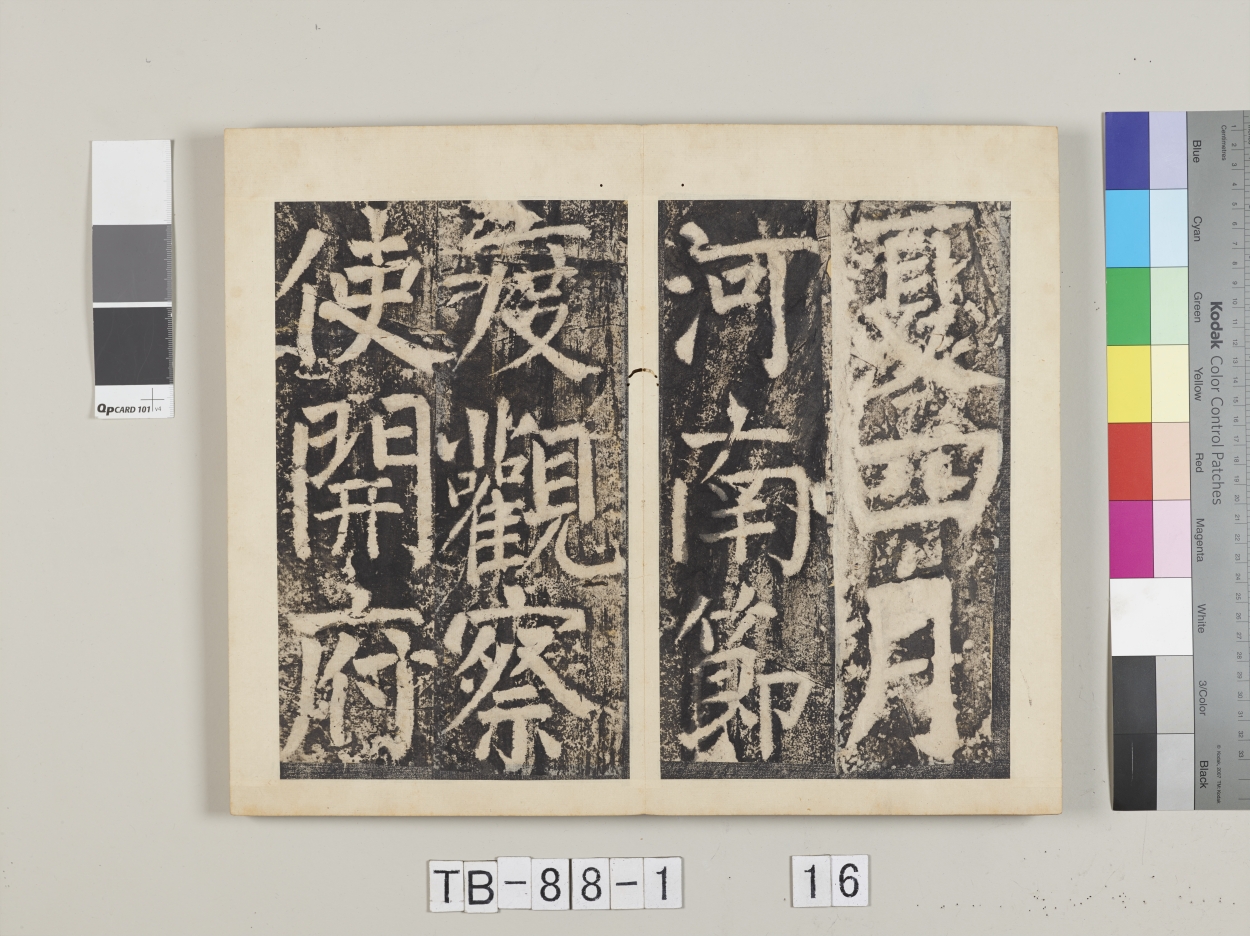 夏四月
河南節
度觀察
使開府
QpCARD 101 v4
TB-88-1 16
Kodak Color Control Patches
Blue
Cyan
Green
Yellow
Red
Magenta
White
3/Color
Black
Centimetres